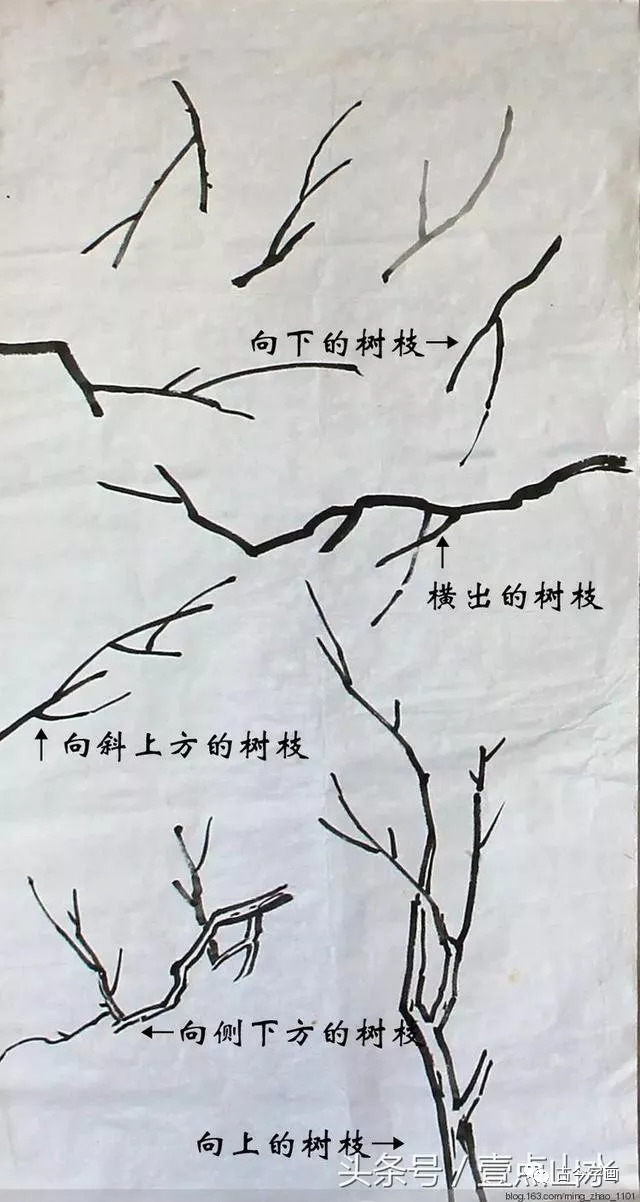 向下的树枝→
横出的树枝
向斜上方的树枝
←向侧下方的树枝
向上的树枝→
头条号/壹点山水
古今字画
blog.163.com/ming_zhao_1101